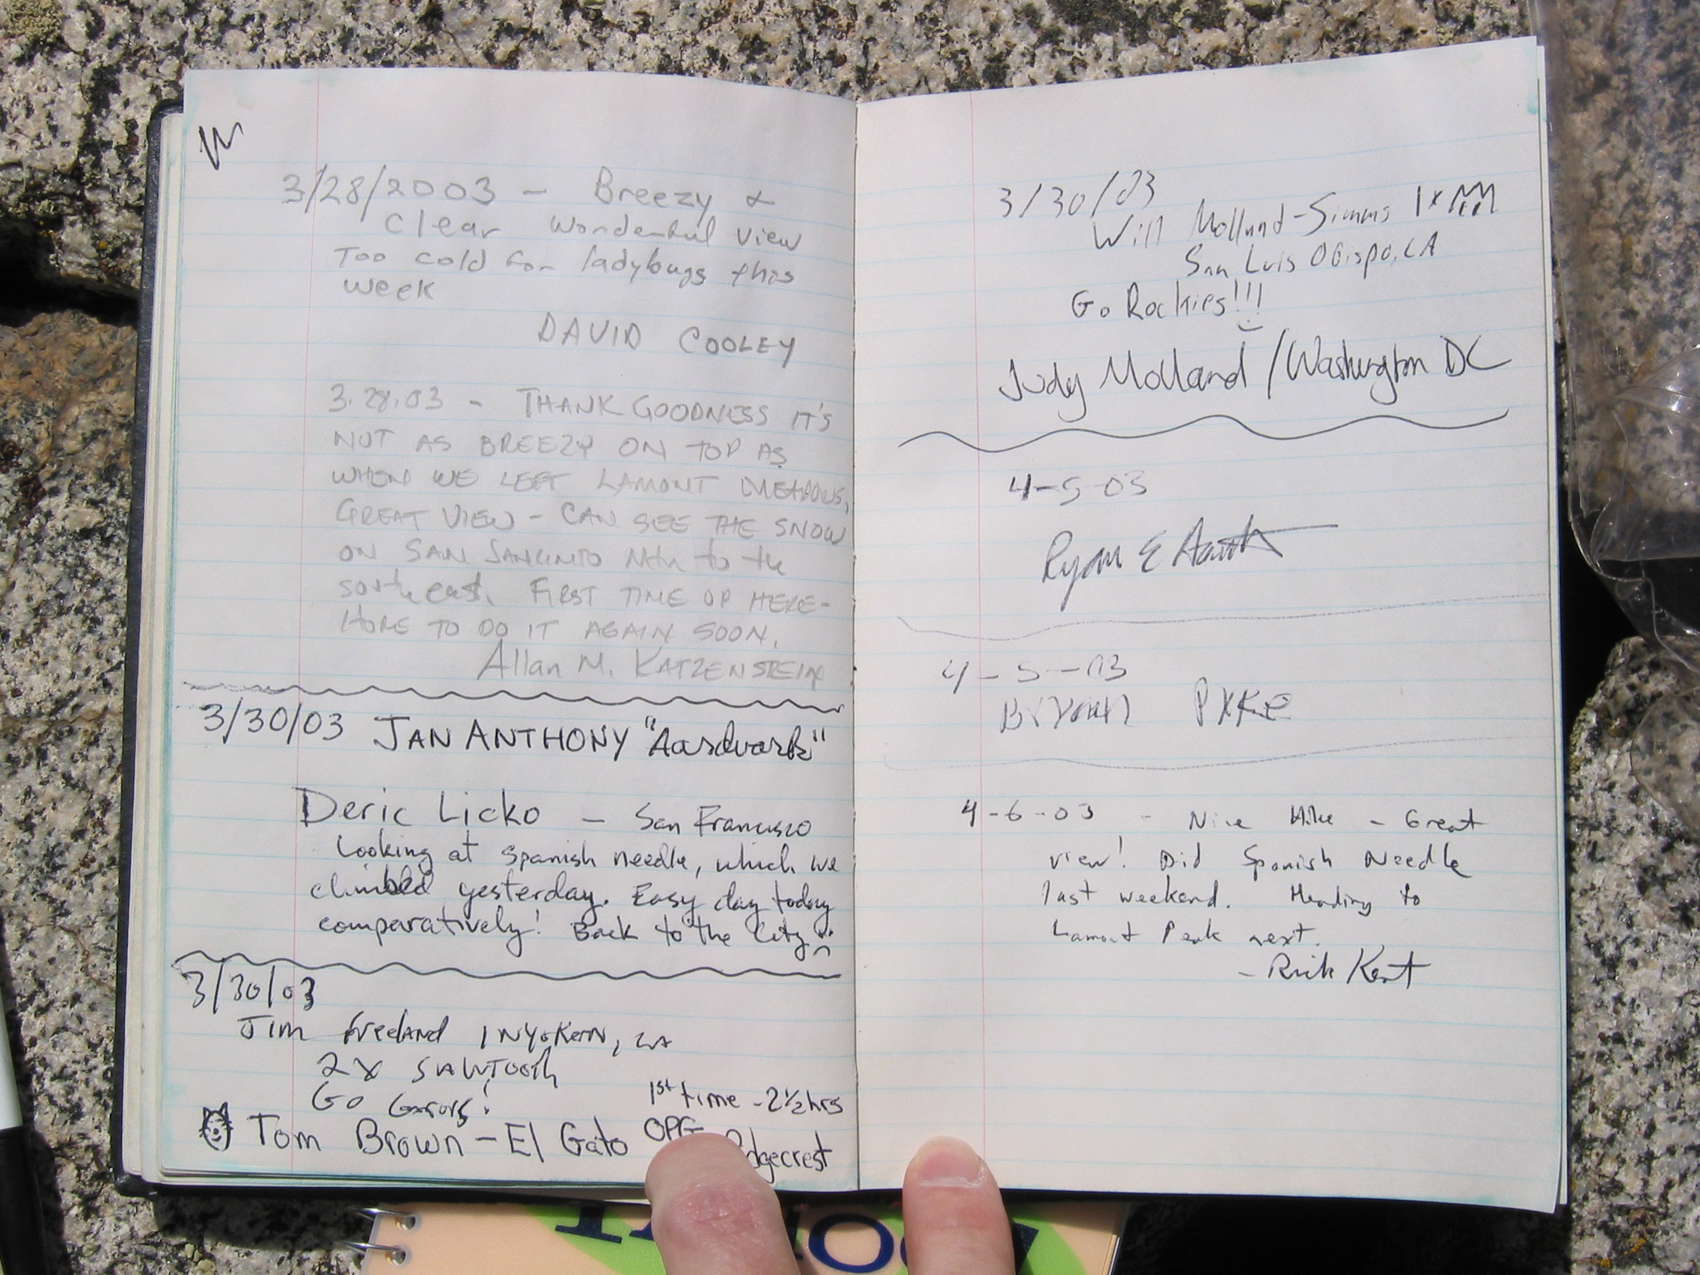 3/28/2003 - Breezy &
Clear Wonderful View
Too cold for ladybugs this
week
DAVID COOLEY
3.28.03 - THANK GOODNESS IT'S
NOT AS BREEZY ON TOP AS
WHEN WE LEFT LAMONT MEADOWS,
GREAT VIEW - CAN SEE THE SNOW
ON SAN JANCINTO Mtn to the
south east. FIRST TIME UP HERE-
HOPE TO DO IT AGAIN SOON.
Allan M. KATZENSTEIN
3/30/03 JAN ANTHONY "Aardvark"
Deric Licko - San Francisco
Looking at Spanish needle, which we
climbed yesterday. Easy day today
comparatively! Back to the City :(
3/30/03
Jim Freeland INYOKERN, CA
2X SAWTOOTH
GO
1st time - 2 1/2 hrs
Tom Brown - El Gato OPG Ridgecrest
3/30/03
Will Molland-Simms 1x
San Luis Obispo, CA
Go Rockies!!!
Judy Molland / Washington DC
4-5-03
Ryan E
4-5-03
Bryan
4-6-03 - Nice Hike - Great
view! Did Spanish Needle
last weekend. Heading to
Lamont Peak next.
- Rick Kent